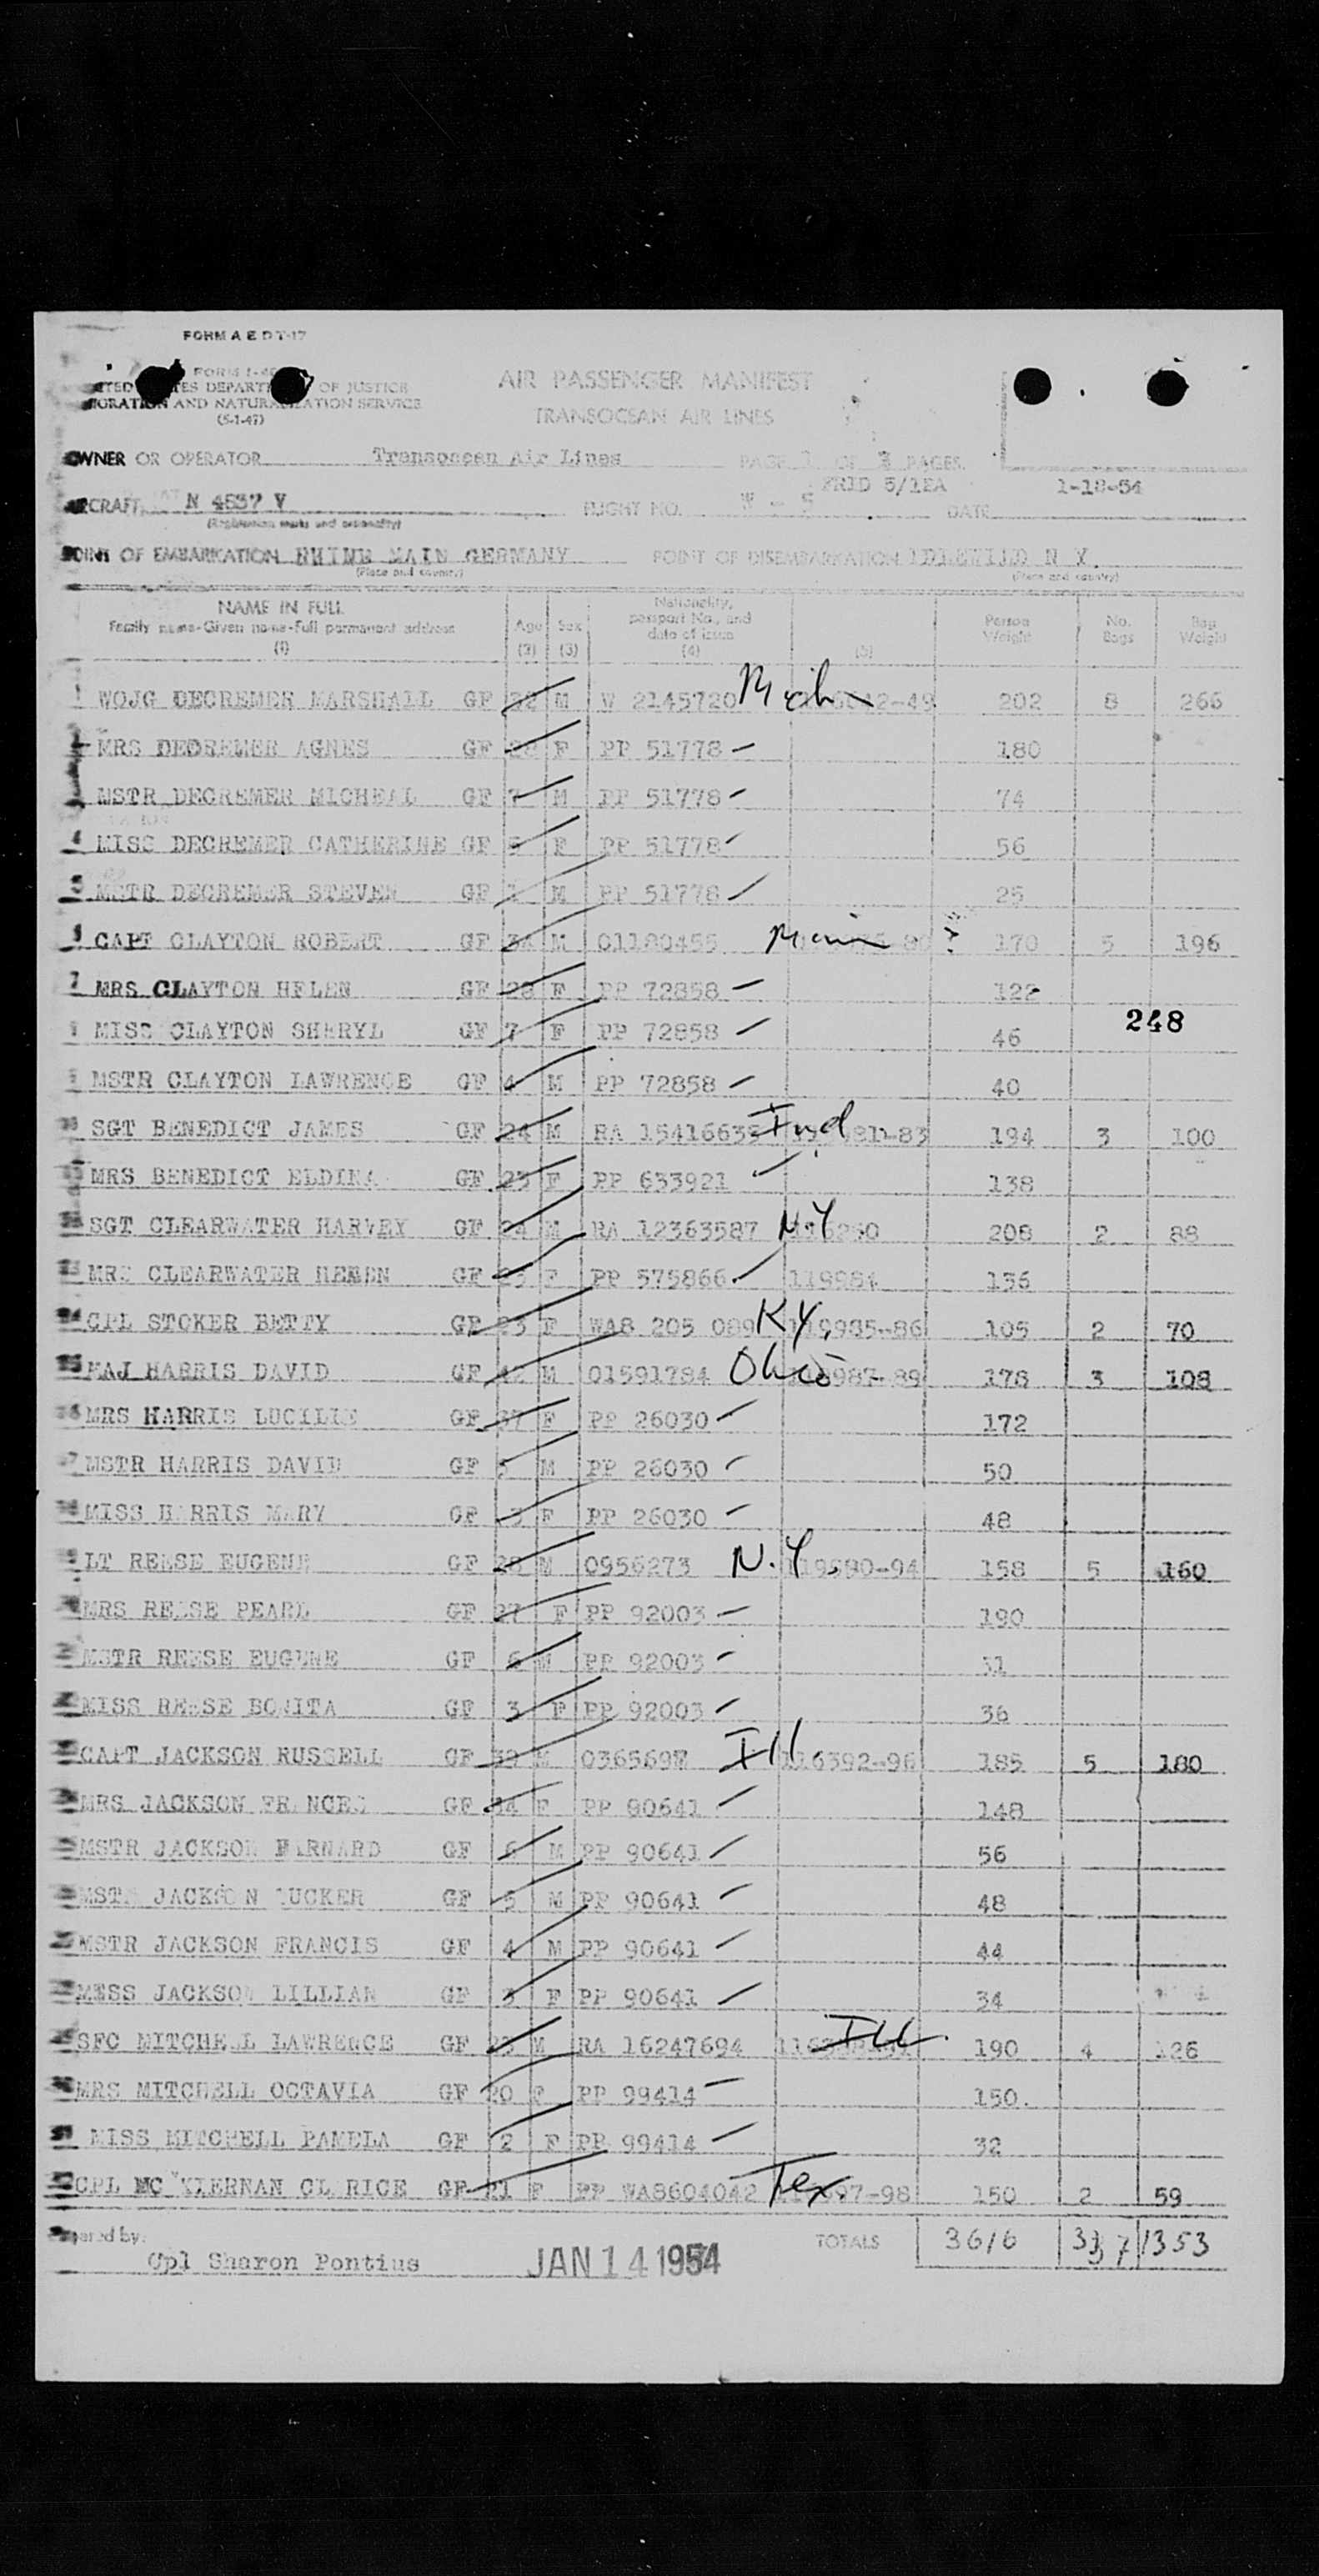 FORM A E D T-17
FORM I-4
OF JUSTICE
AND NATURALIZATION SERVICE
(5-1-47)
AIR PASSENGER MANIFEST
TRANSOCEAN AIR LINES
OWNER OR OPERATOR Transocean Air Lines PAGE 1 OF 3 PAGES
5/1EA 1-18-54
AIRCRAFT N 4837 V FLIGHT NO. DATE
(Registration marks and nationality)
POINT OF EMBARKATION RHINE MAIN GERMANY POINT OF DISEMBARKATION IDLEWILD N Y
(Place and country) (Place and country)
NAME IN FULL Family name-Given name-Full permanent address (1) Age (2) Sex (3) Nationality, passport No., and date of issue (4) (5) Person Weight No. Bags Bag Weight
1 WOJG DECREMER MARSHALL GF 32 M W 2145720 Mich 2-49 202 8 266
MRS DEDREMER AGNES GF F PP 51778 180
MSTR DECREMER MICHEAL GF 7 M PP 51778 74
4 MISS DECREMER CATHERINE GF 5 F PP 51778 56
5 MSTR DECREMER STEVEN GF 1 M PP 51778 25
CAPT CLAYTON ROBERT GF 34 M 01180455 170 5 196
7 MRS CLAYTON HELEN GF 28 F PP 72858 122
MISS CLAYTON SHERYL GF 7 F PP 72858 46 248
MSTR CLAYTON LAWRENCE GF 4 M PP 72858 40
SGT BENEDICT JAMES GF 24 M RA 15416635 Ind -83 194 3 100
MRS BENEDICT ELDINA GF 23 F PP 633921 138
SGT CLEARWATER HARVEY GF 24 M RA 12363587 N.Y 208 2 88
MRS CLEARWATER HEMEN GF 23 F PP 575866 119984 136
CPL STOKER BETTY GF 23 F WA8 205 089 KY. 119985-86 105 2 70
MAJ HARRIS DAVID GF 42 M 01591784 Ohio 987-89 178 3 108
MRS HARRIS LUCILLE GF 37 F PP 26030 172
MSTR HARRIS DAVID GF 5 M PP 26030 50
MISS HARRIS MARY GF 3 F PP 26030 48
LT REESE EUGENE GF 28 M 0956273 N.Y. 119990-94 158 5 160
MRS REESE PEARL GF 27 F PP 92003 190
MSTR REESE EUGENE GF 6 M PP 92003 31
MISS REESE BONITA GF 3 F PP 92003 36
CAPT JACKSON RUSSELL GF 39 M Ill. 116392-96 185 5 180
MRS JACKSON FRANCES GF 34 F PP 90641 148
MSTR JACKSON GF 6 M PP 90641 56
MSTR JACKSON TUCKER GF 5 M PP 90641 48
MSTR JACKSON FRANCIS GF 4 M PP 90641 44
MISS JACKSON LILLIAN GF 3 F PP 90641 34
SFC MITCHELL LAWRENCE GF 23 M RA 16247694 Ill. 190 4 126
MRS MITCHELL OCTAVIA GF 20 F PP 99414 150.
MISS MITCHELL PAMELA GF 2 F PP 99414 32
CPL MC KIERNAN CLARICE GF 21 F PP WA8604042 Tex. 97-98 150 2 59
Prepared by: TOTALS 3616 1353
Cpl Sharon Pontius JAN 14 1954